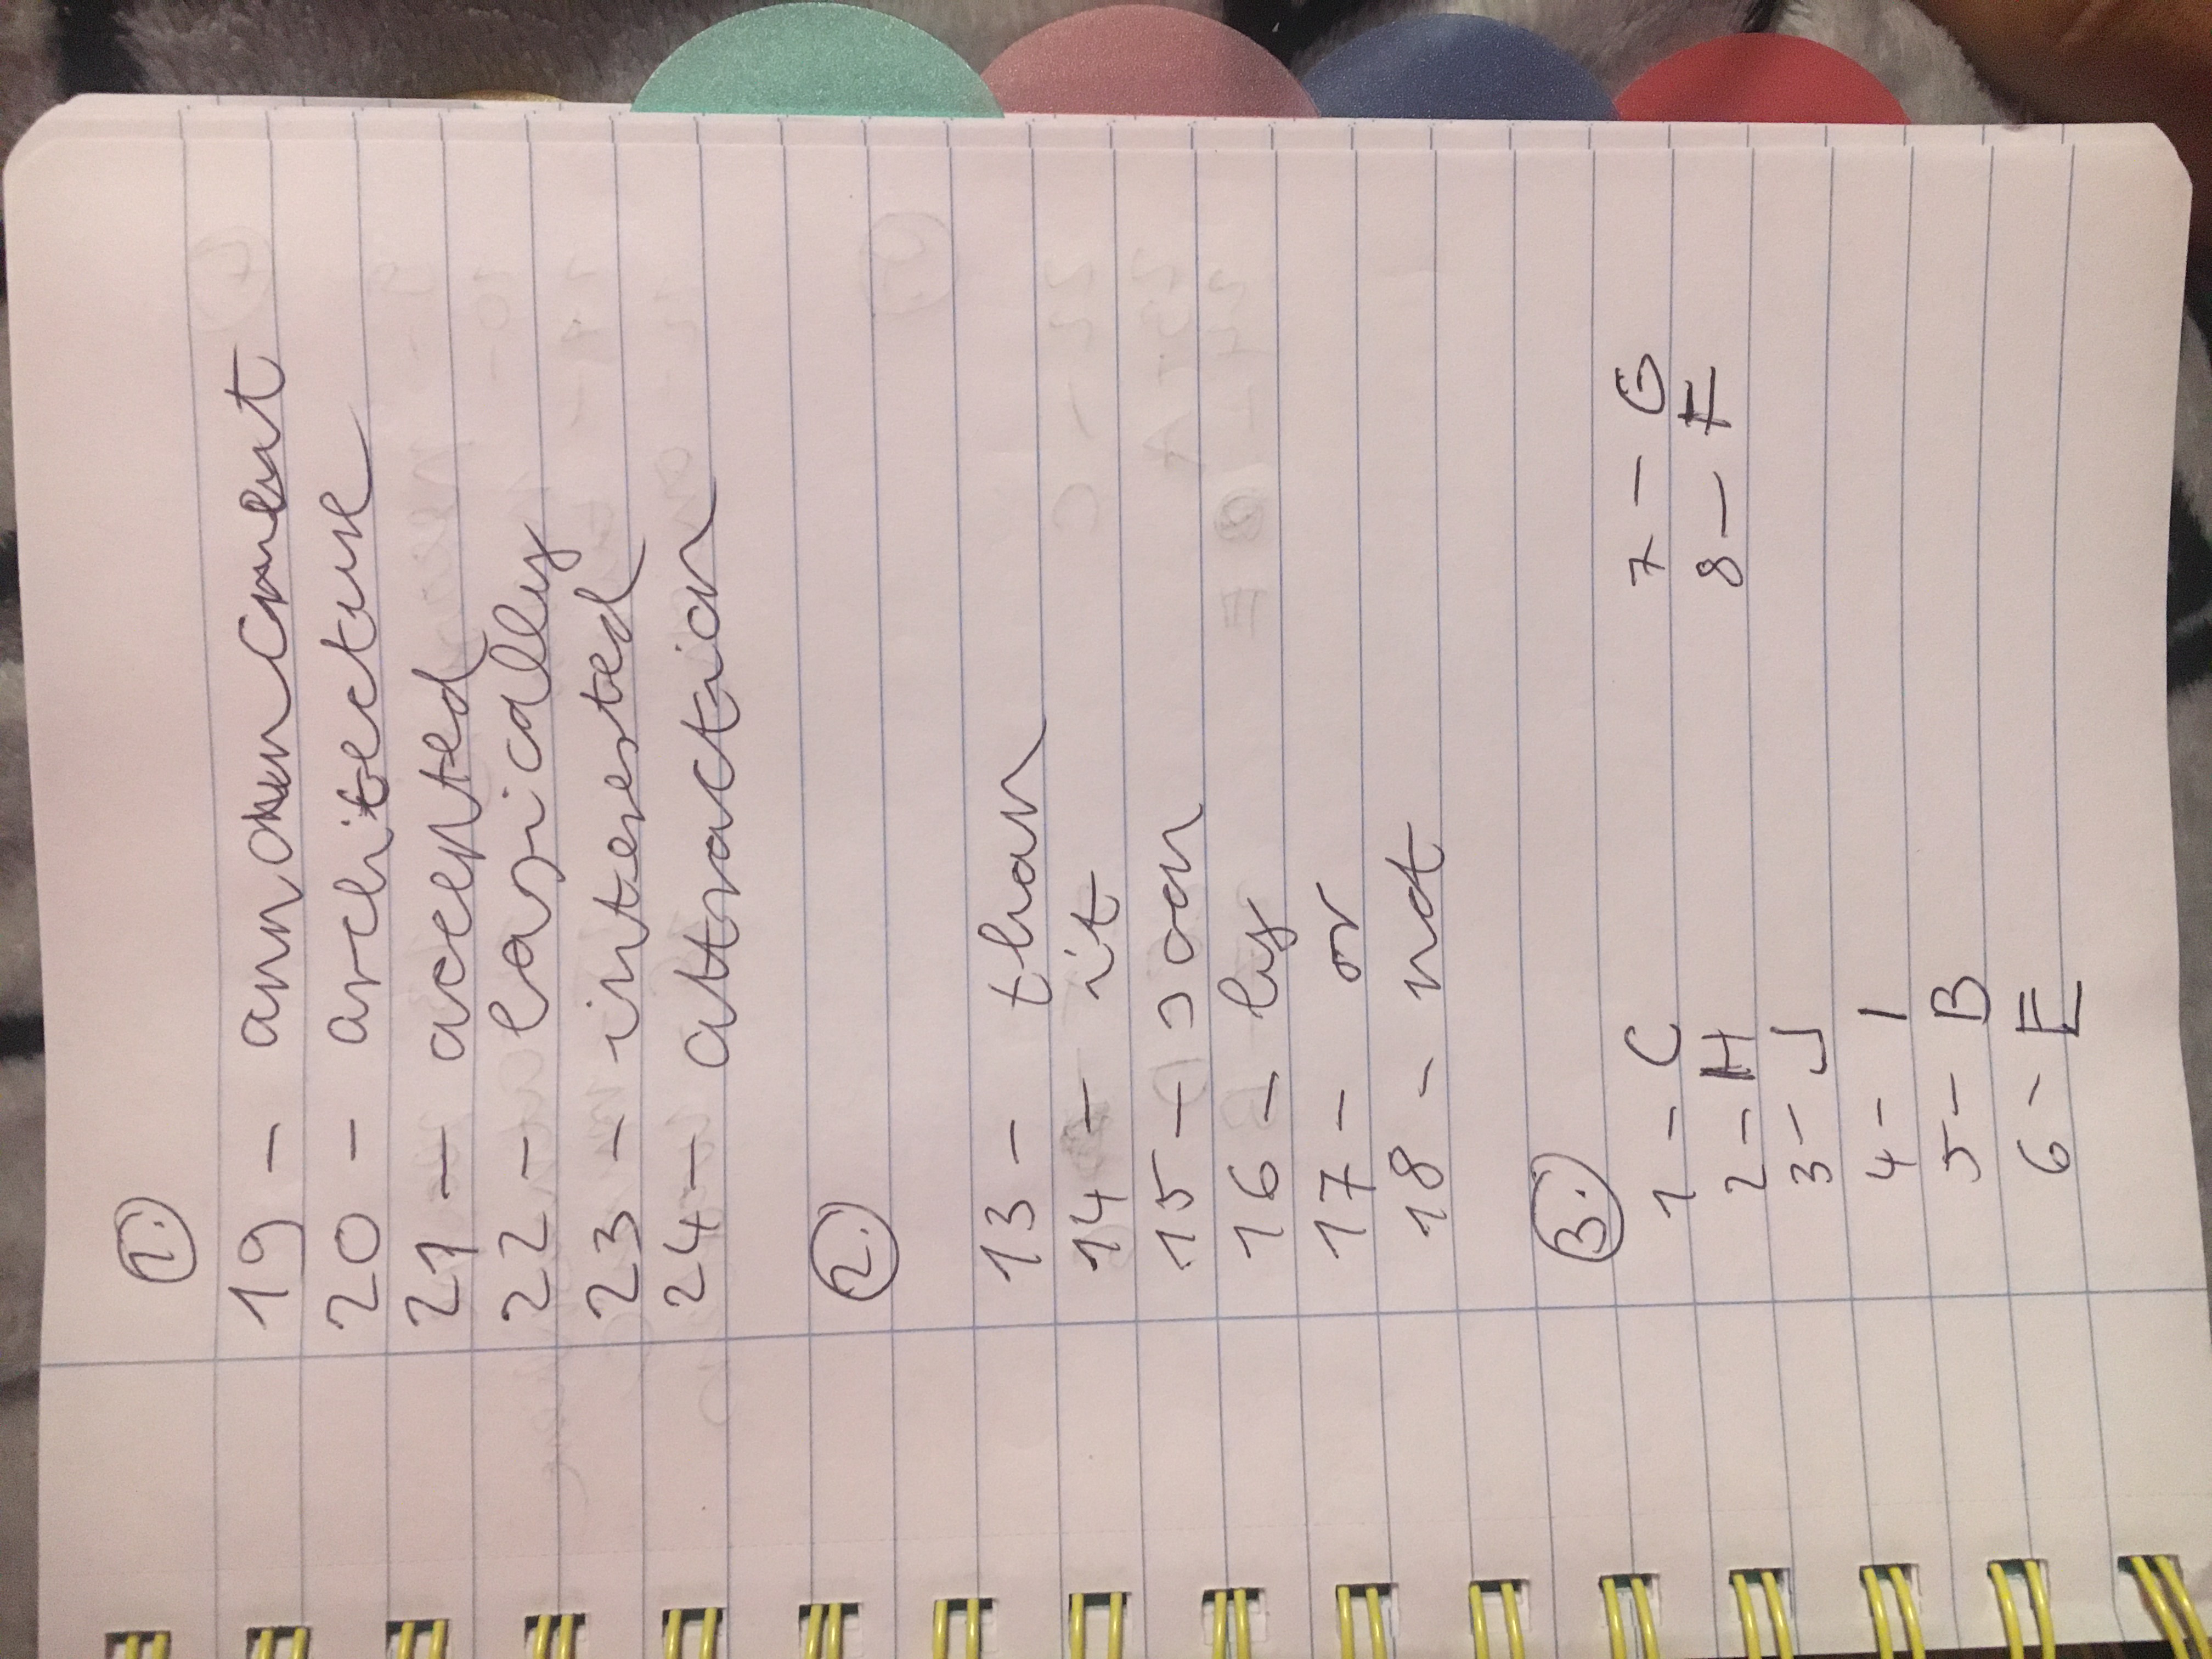 1.
19 - announcement
20 - architecture
21 - accepted
22 - logically
23 - interested
24 - attraction
2.
13 - than
14 - it
15 - on
16 - by
17 - or
18 - not
3.
1 - C
2 - H
3 - J
4 - I
5 - B
6 - E
7 - G
8 - F